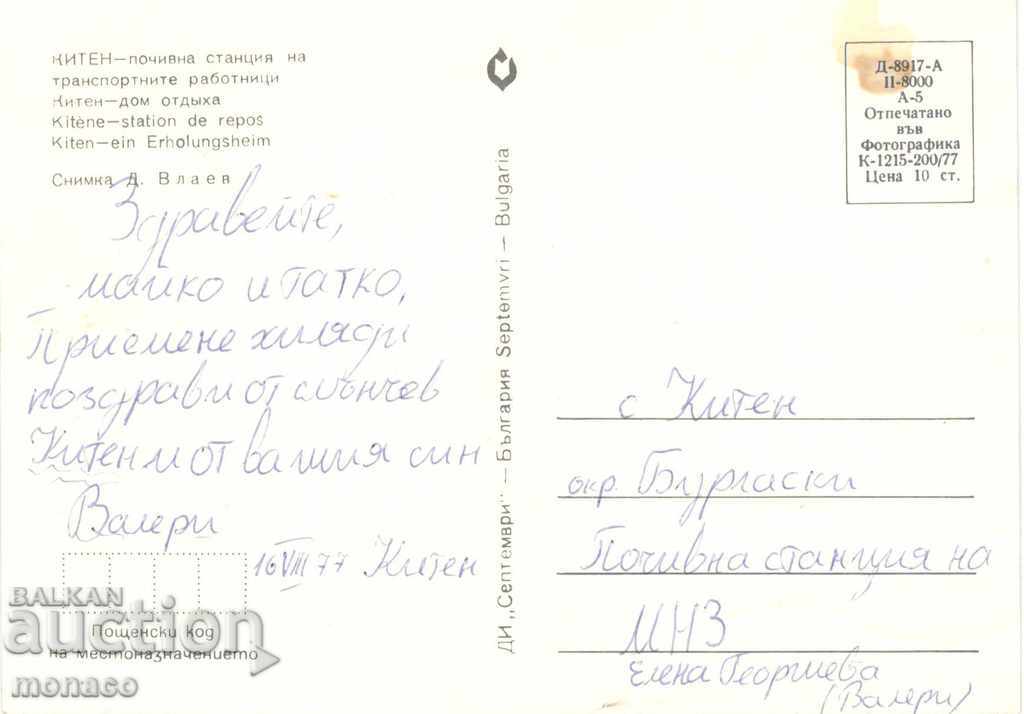 КИТЕН—почивна станция на
транспортните работници
Китен—дом отдыха
Kitène—station de repos
Kiten—ein Erholungsheim
Снимка Д. Влаев
Здравейте,
майко и татко,
Приемене хиляди
поздрави от слънчев
Китен и от вашия син
Валери
16 VIII 77 Китен
Пощенски код
на местоназначението
ДИ „Септември" — България Septemvri — Bulgaria
Д-8917-А
II-8000
А-5
Отпечатано
във
Фотографика
К-1215-200/77
Цена 10 ст.
с Китен
окр. Бургаски
Почивна станция на
МНЗ
Елена Георгиева
(Валери)
BALKAN
auction
monaco